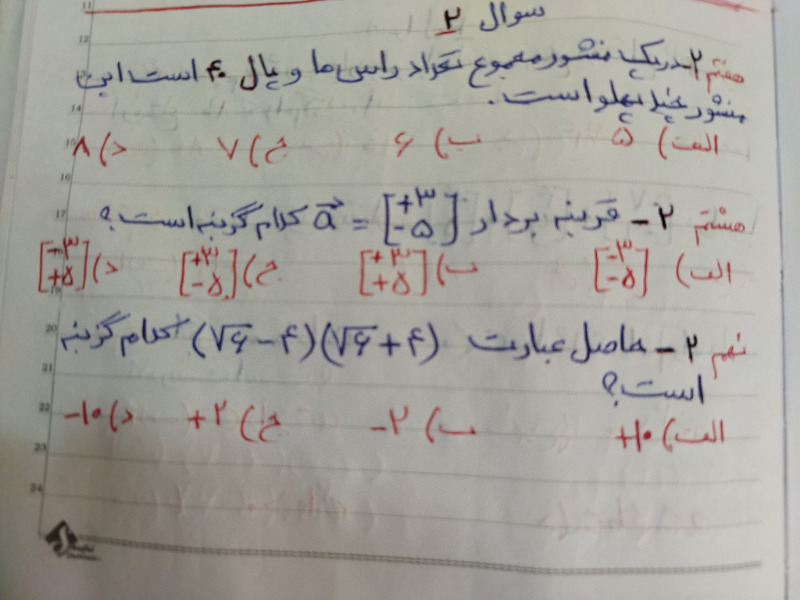 سوال ۲
هفتم ۲- در یک منشور مجموع تعداد راس ها و یال ۴۰ است این
منشور چند پهلو است.
الف) ۵ ب) ۶ ج) ۷ د) ۸
هشتم ۲- قرینه بردار a⃗ = [+۳ -۵] کدام گزینه است؟
الف) [-۳ -۵] ب) [+۳ +۵] ج) [+۳ -۵] د) [-۳ +۵]
نهم ۲- حاصل عبارت (√۶-۴)(√۶+۴) کدام گزینه
است؟
الف) +۱۰ ب) -۲ ج) +۲ د) -۱۰
11
12
14
15
16
17
20
21
22
23
24